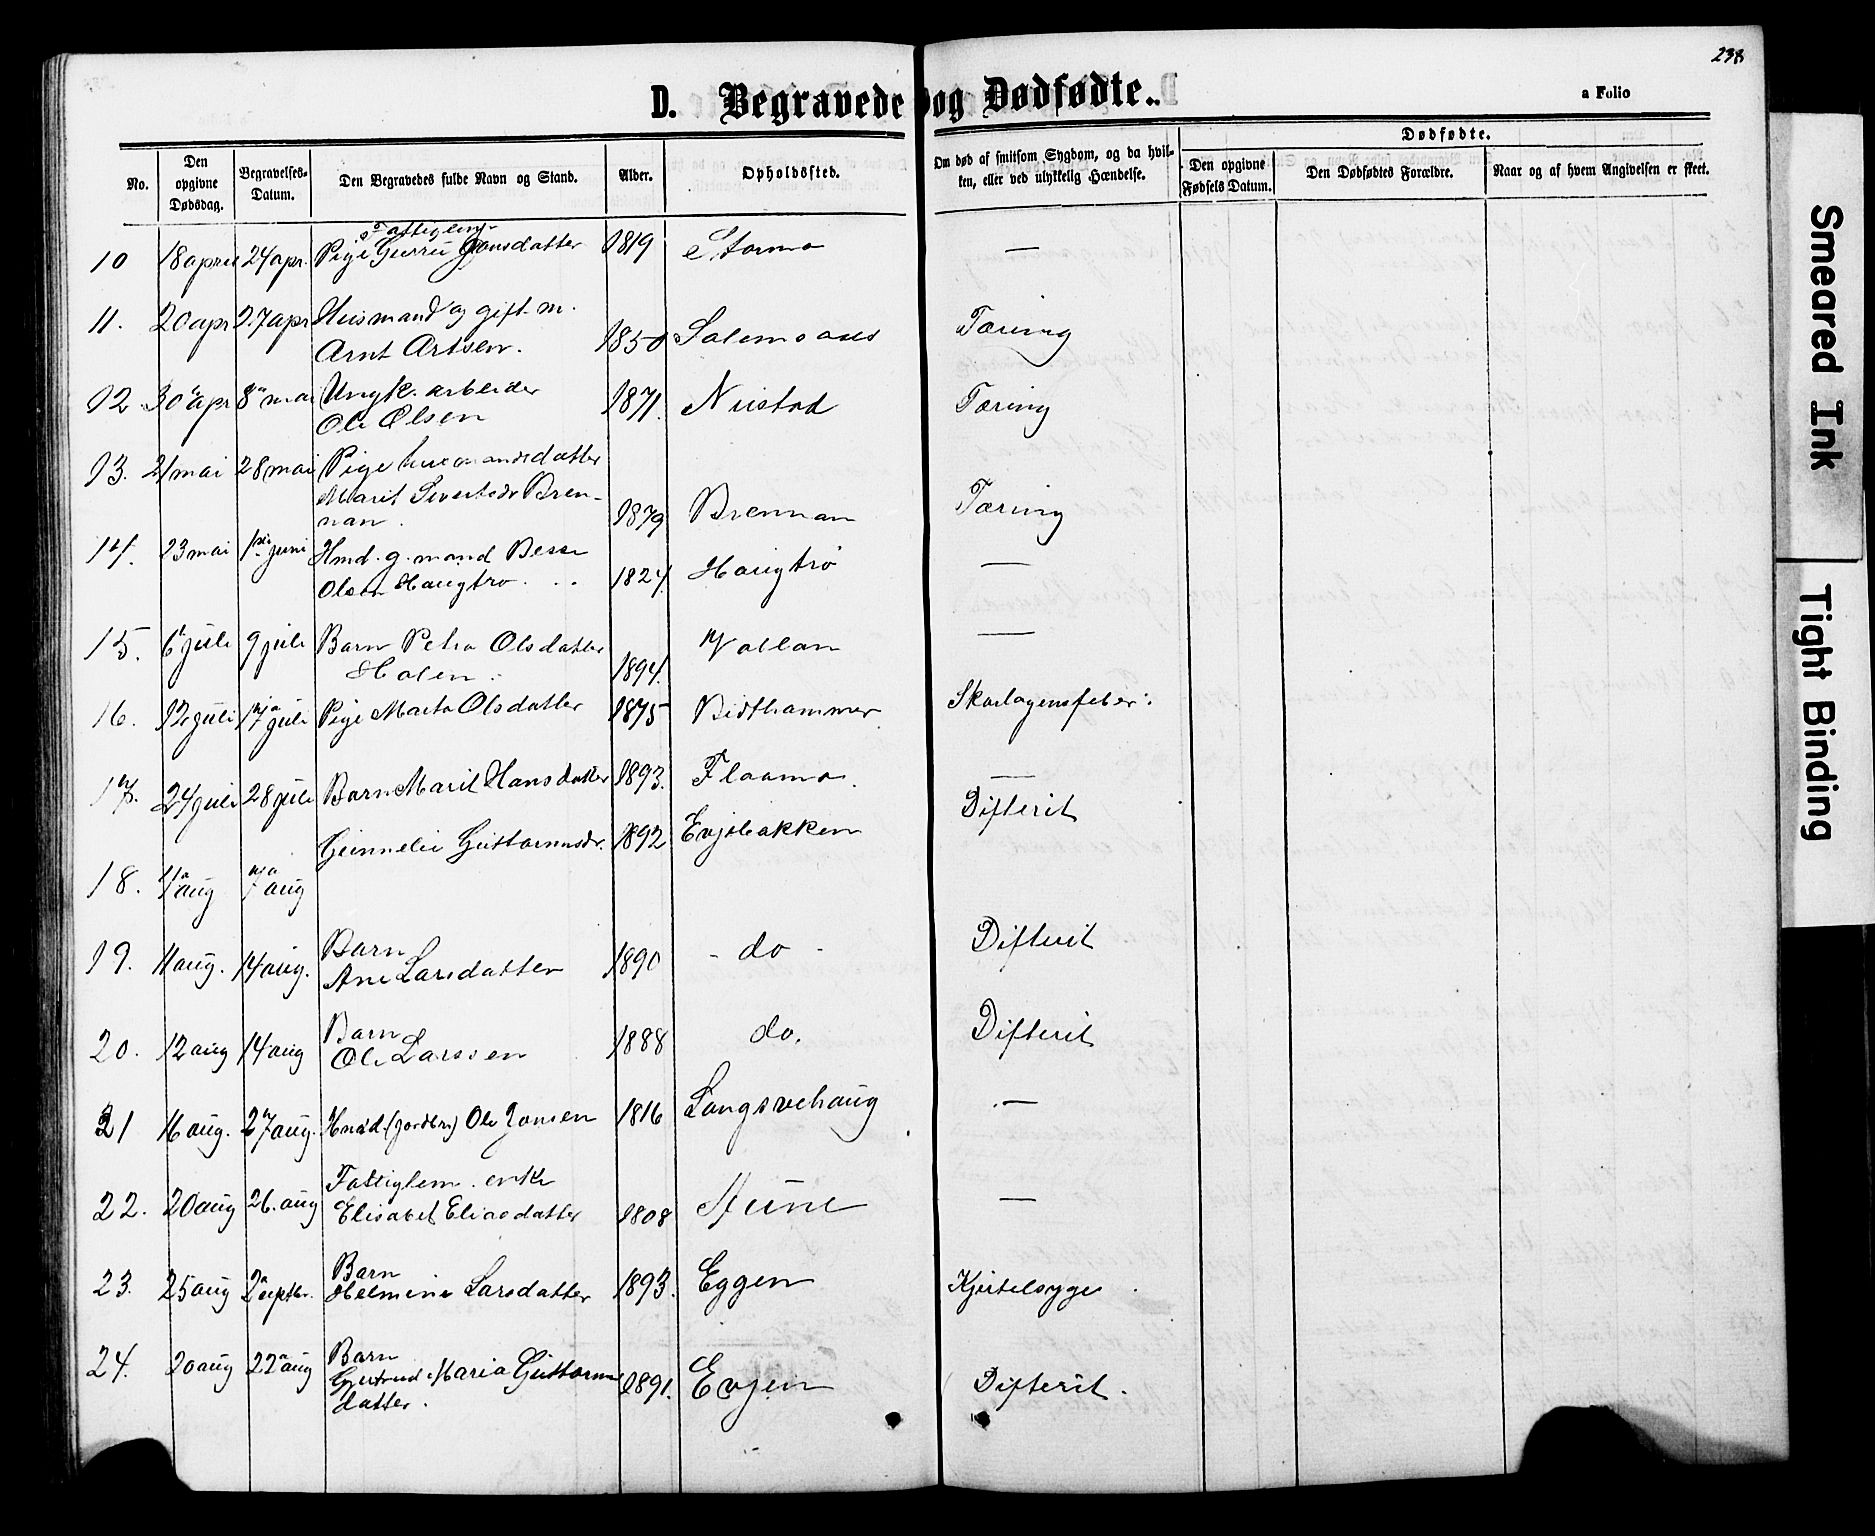 238
D. Begravede og Dødfødte.
a Folio
No. Den opgivne Dødsdag. Begravelses-Datum. Den Begravedes fulde Navn og Stand. Alder. Opholdssted. Om død af smitsom Sygdom, og da hvilken, eller ved ulykkelig Hændelse. Dødfødte. Den opgivne Fødsels Datum. Den Dødfødtes Forældre. Naar og af hvem Angivelsen er skeet.
Fattiglem
10 18 april 24 apr. Pige Gurru Jonsdatter 1819 Stormo —
11. 20 apr 27 apr Husmand og gift m.
Arnt Artsen. 1850 Tæring
12. 30 apr 8 mai Ungk. arbeider
Ole Olsen 1871. Nustad Tæring
13. 21 mai 28 mai Pige husmandsdatter
Marit Sivertsdr Bren-
nan. 1879 Brennan Tæring
14. 23 mai 1ste juni Hmd. g. mand
Olsen Haugtrø 1824. Haugtrø —
15. 6 juli 9 juli Barn Petra Olsdatter
Holen. 1894. Vollan —
16. 12 juli 17 juli Pige Marta Olsdatter 1875 Bidthammer Skarlagensfeber.
17. 24 juli 28 juli Barn Marit Hansdatter 1893. Flaamo. —
Gunnelie Guttormsdr. 1892 Evjebakken Difterit
18. 1 aug 7 aug
19. 11 aug. 14 aug. Barn
Ane Larsdatter 1890 - do - Difterit
20. 12 aug 14 aug Barn
Ole Larssen 1888 do. Difterit
21 16 aug. 27 aug. (jordbr.) Ole Jonsen 1816 Langsvehaug —
22. 20 aug 26. aug Fattiglem. enke
Elisabet Eliasdatter 1808 Hune —
23. 25 aug 2 septbr. Barn
Helmine Larsdatter 1893. Eggen Kjertelsyge
24. 20 aug 22 aug Barn
Gjertrud Maria Guttorms
datter. 1891. Evjen Difterit.
Smeared Ink
Tight Binding